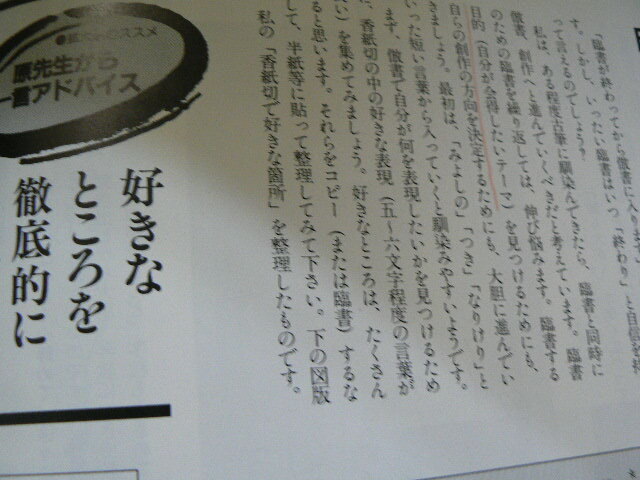 「臨書が終わってから倣書に入ります
す。しかし、いったい臨書はいつ「終わり」と自信を持
って言えるのでしょう?
私は、ある程度古筆に馴染んできたら、臨書と同時に
倣書、創作へと進んでいくべきだと考えています。臨書
のための臨書を繰り返しては、伸び悩みます。臨書する
目的(自分が会得したいテーマ)を見つけるためにも、
自らの創作の方向を決定するためにも、大胆に進んでい
きましょう。最初は、「みよしの」「つき」「なりけり」と
いった短い言葉から入っていくと馴染みやすいようです。
まず、倣書で自分が何を表現したいかを見つけるため
に、香紙切の中の好きな表現(五〜六文字程度の言葉が
い)を集めてみましょう。好きなところは、たくさん
ると思います。それらをコピー(または臨書)するな
して、半紙等に貼って整理してみて下さい。下の図版
私の「香紙切で好きな箇所」を整理したものです。
ススメ
原先生から
一言アドバイス
好きな
ところを
徹底的に